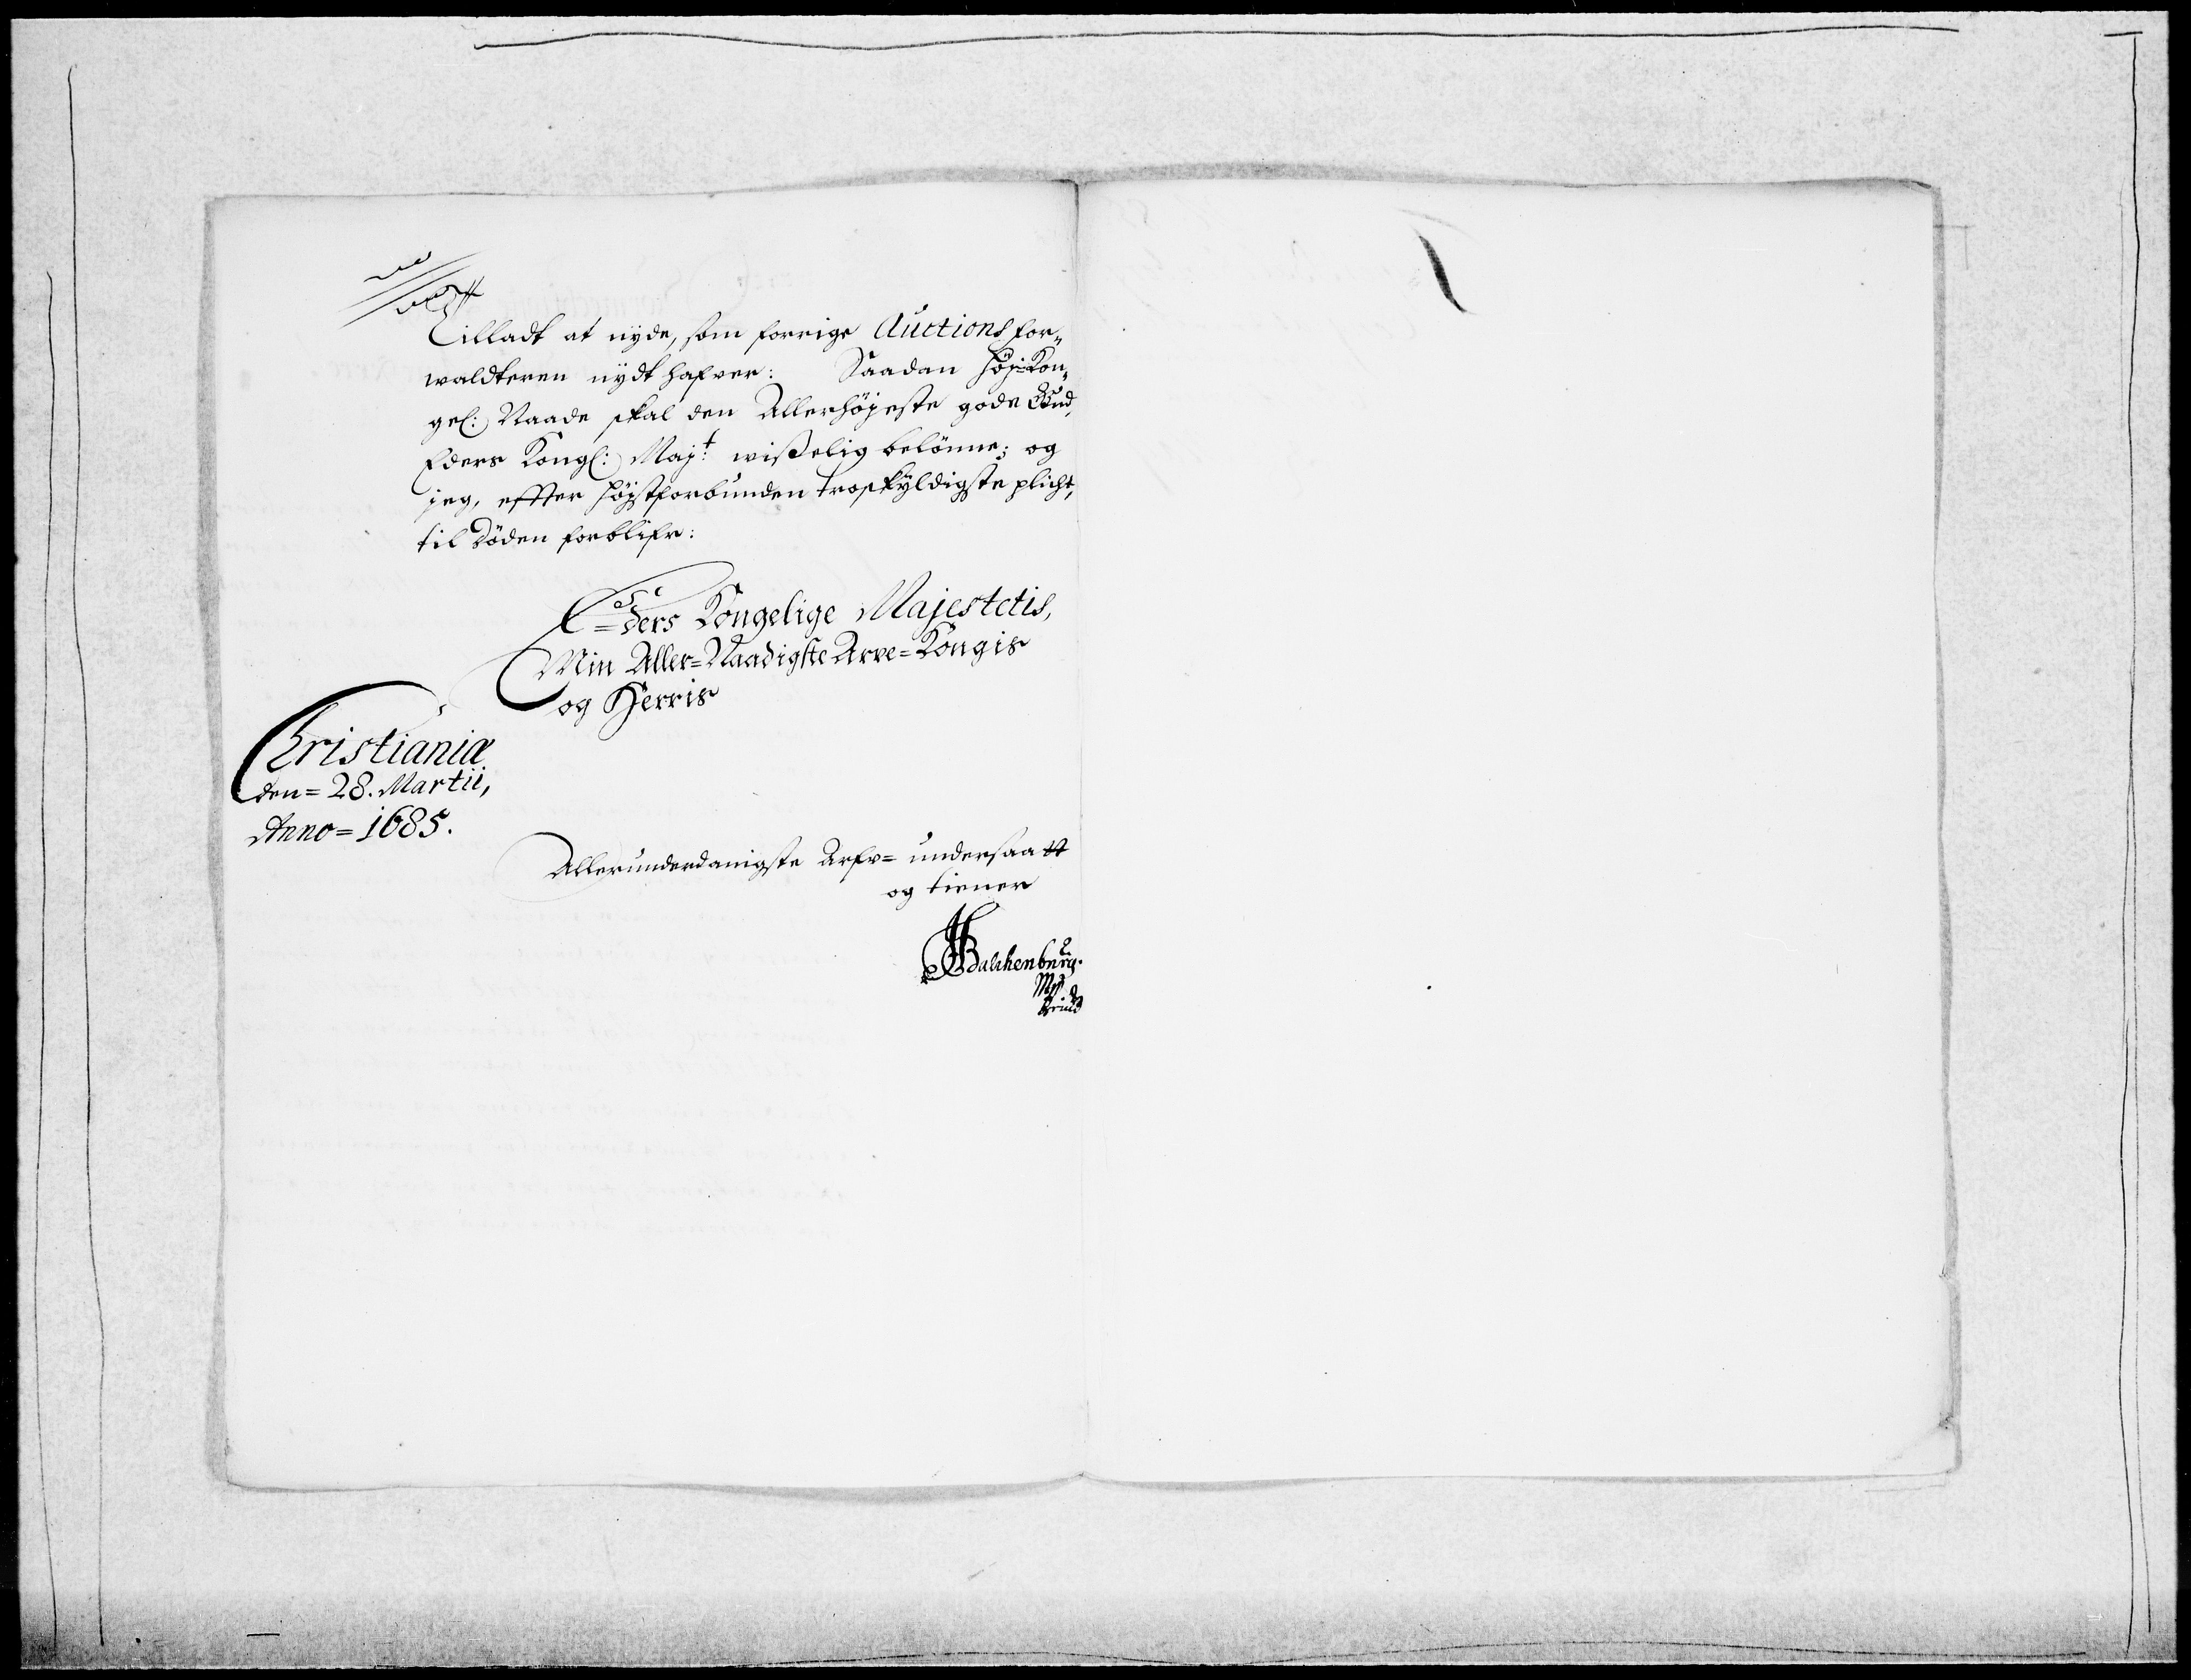 Tilladt at nyde, som forrige Auctions for„
waldteren nydt hafver: Saadan höj-Kon„
gel: Naade skal den Allerhöjeste gode Gud,
Eders Kongl: Maj:t wißelig belönne; og
jeg, effter höjstforbunden troskyldigste plicht,
til döden forblifr:
E=ders Kongelige Majestetis,
Min Aller=Naadigste Arve=Kongis
og Herris
Christianiæ
den= 28. Martii,
Anno= 1685.
Allerunderdanigste Arfve= undersaatt
og tiener